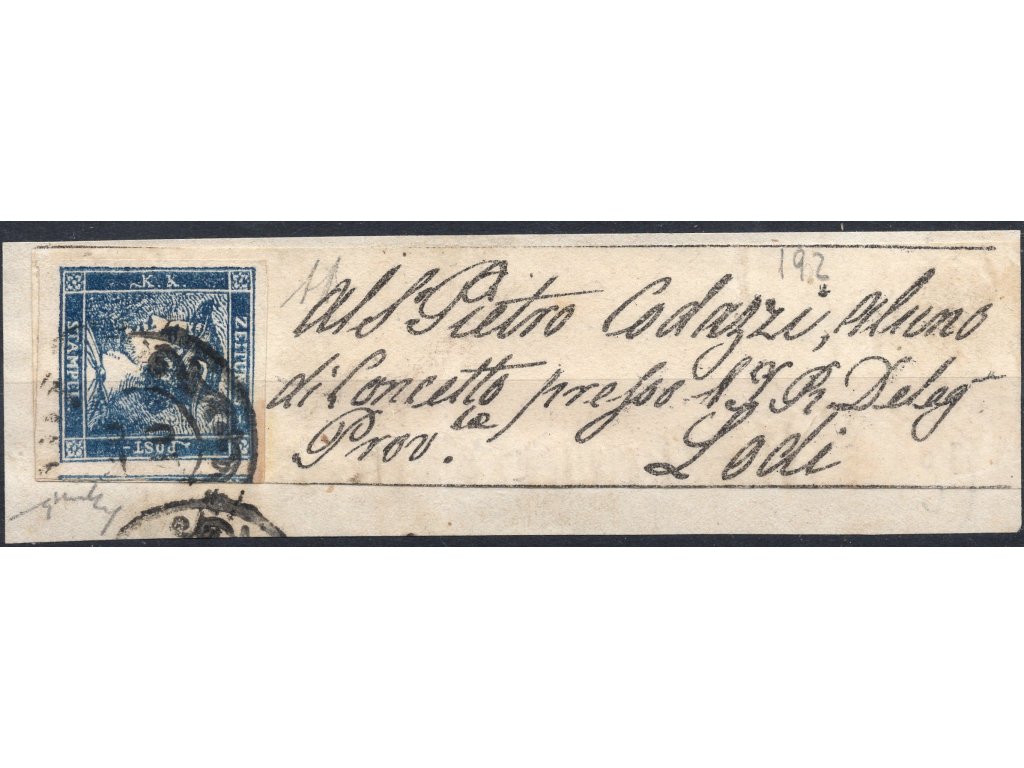 K.K.
ZEITUNGS
STAMPEL
POST
192
Al Sr Pietro Codazzi, aluno
di Concetto presso l'I. R. Deleg
Prov.le Lodi